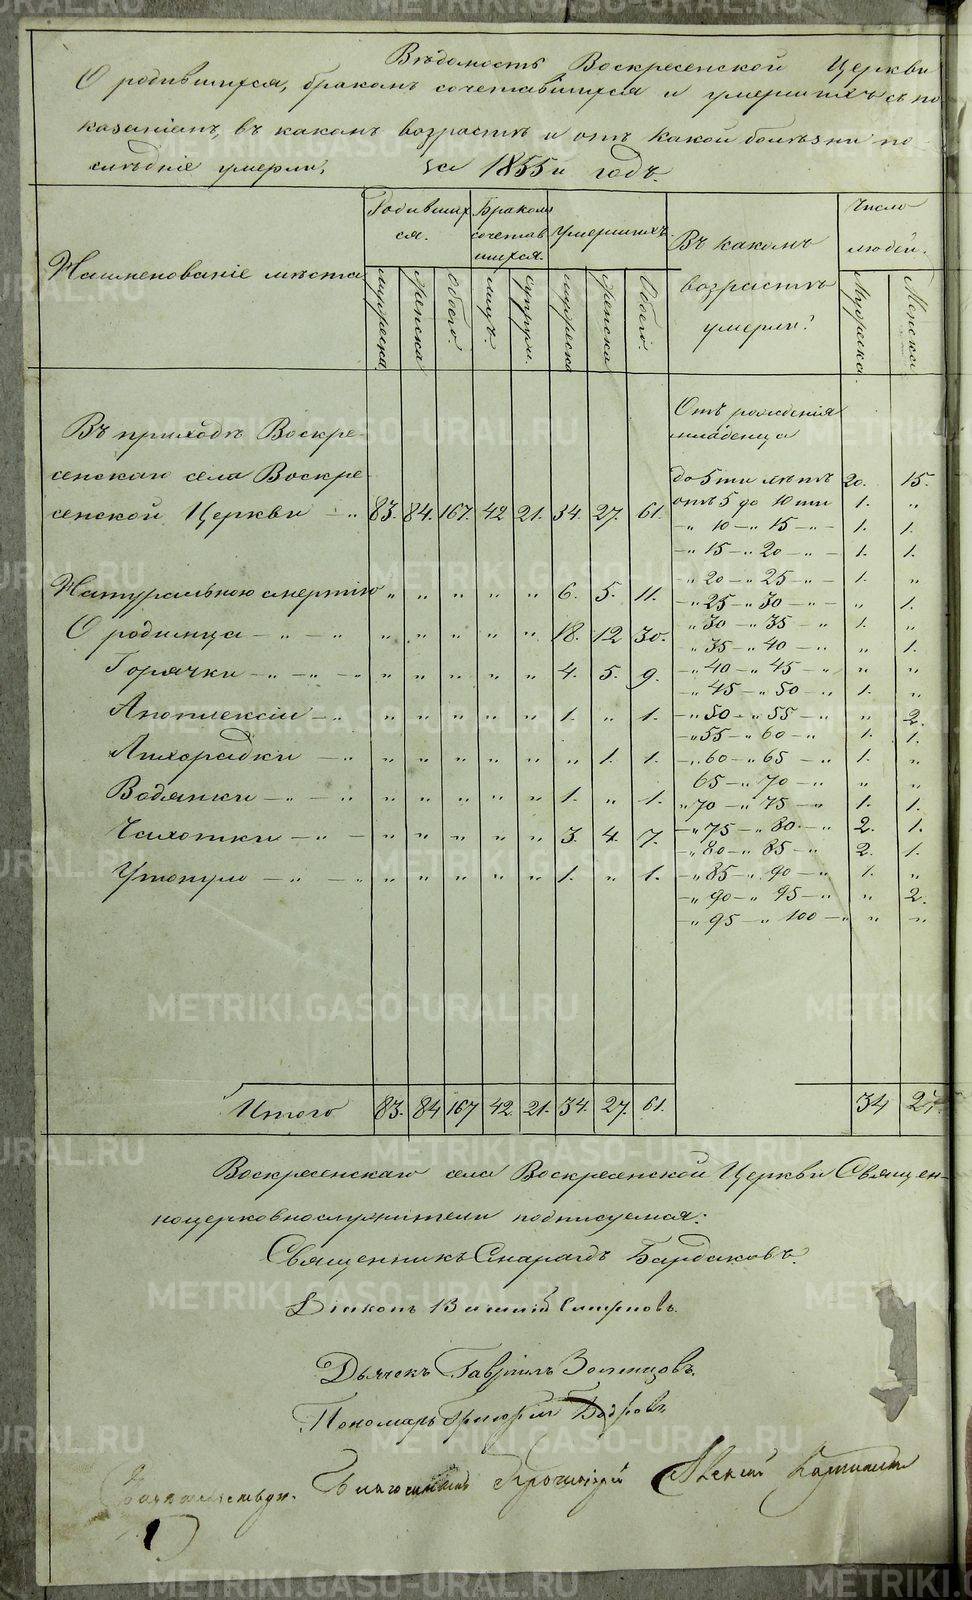 Вѣдомость Воскресенской Церкви
О родившихся, бракомъ сочетавшихся и умершихъ съ по-
казаніемъ, въ какомъ возрастѣ и отъ какой болѣзни по-
слѣдніе умерли, за 1855й годъ.
Наименованіе мѣста
Родивших
ся.
Бракомъ
сочетав
шихся.
Умершихъ.
Въ какомъ
возрастѣ
умерли?
Число
людей.
мужеска. женска Обоего. лицъ. супруж. мужеска женска Обоего. Мужеска. Женска.
Отъ рожденія
младенца
Въ приходѣ Воскре-
сенскаго села Воскре
сенской Церкви — „ 83. 84. 167. 42 21. 34. 27. 61.
до 5ти лѣтъ 20. 15.
отъ 5 до 10ти 1. „
— „ 10 — „ 15 — „ — 1. 1.
— „ 15 — „ 20 — „ — 1. 1.
— „ 20 — „ 25 — „ — 1. „
— „ 25 — „ 30 — „ — „ 1.
„ 30 — „ 35 — „ 1. „
„ 35 — „ 40 — „ „ 1.
— „ 40 — „ 45 — „ „ „
— „ 45 — „ 50 — „ 1. „
— „ 50 — „ 55 — „ „ 2.
— „ 55 — „ 60 — „ 1. 1.
— „ 60 — „ 65 — „ 1. „
65 — „ 70 — „ „ „
„ 70 — „ 75 — „ 1. 1.
— „ 75 — „ 80. — „ 2. 1.
— „ 80 — „ 85 — „ 2. 1.
— „ 85 — „ 90 — „ 1. „
— „ 90 — „ 95 — „ „ 2.
— „ 95 — „ 100 — „ „ „
Натуральною смертію „ „ „ „ „ 6. 5. 11.
О родимца — „ — „ „ „ „ „ „ 18. 12 30.
Горячки — „ — „ — „ „ „ „ „ „ 4. 5. 9.
Апоплексіи — „ „ „ „ „ „ 1. „ 1.
Лихорадки — „ „ „ „ „ „ „ 1. 1.
Водянки — „ — „ „ „ „ „ „ 1. „ 1.
Чахотки — „ — „ „ „ „ „ „ 3. 4. 7.
Утонуло — „ — „ „ „ „ „ „ 1. „ 1.
Итого 83. 84 167 42 21. 34. 27. 61. 34 27.
Воскресенскаго села Воскресенской Церкви Священ-
ноцерковнослужители подписуемся:
Священникъ Смарагдъ Бардаковъ.
Діаконъ Василій Смирновъ.
Дьячекъ Гавріилъ
Пономарь Григорій Бобровъ
Благочинный
METRIKI.GASO-URAL.RU